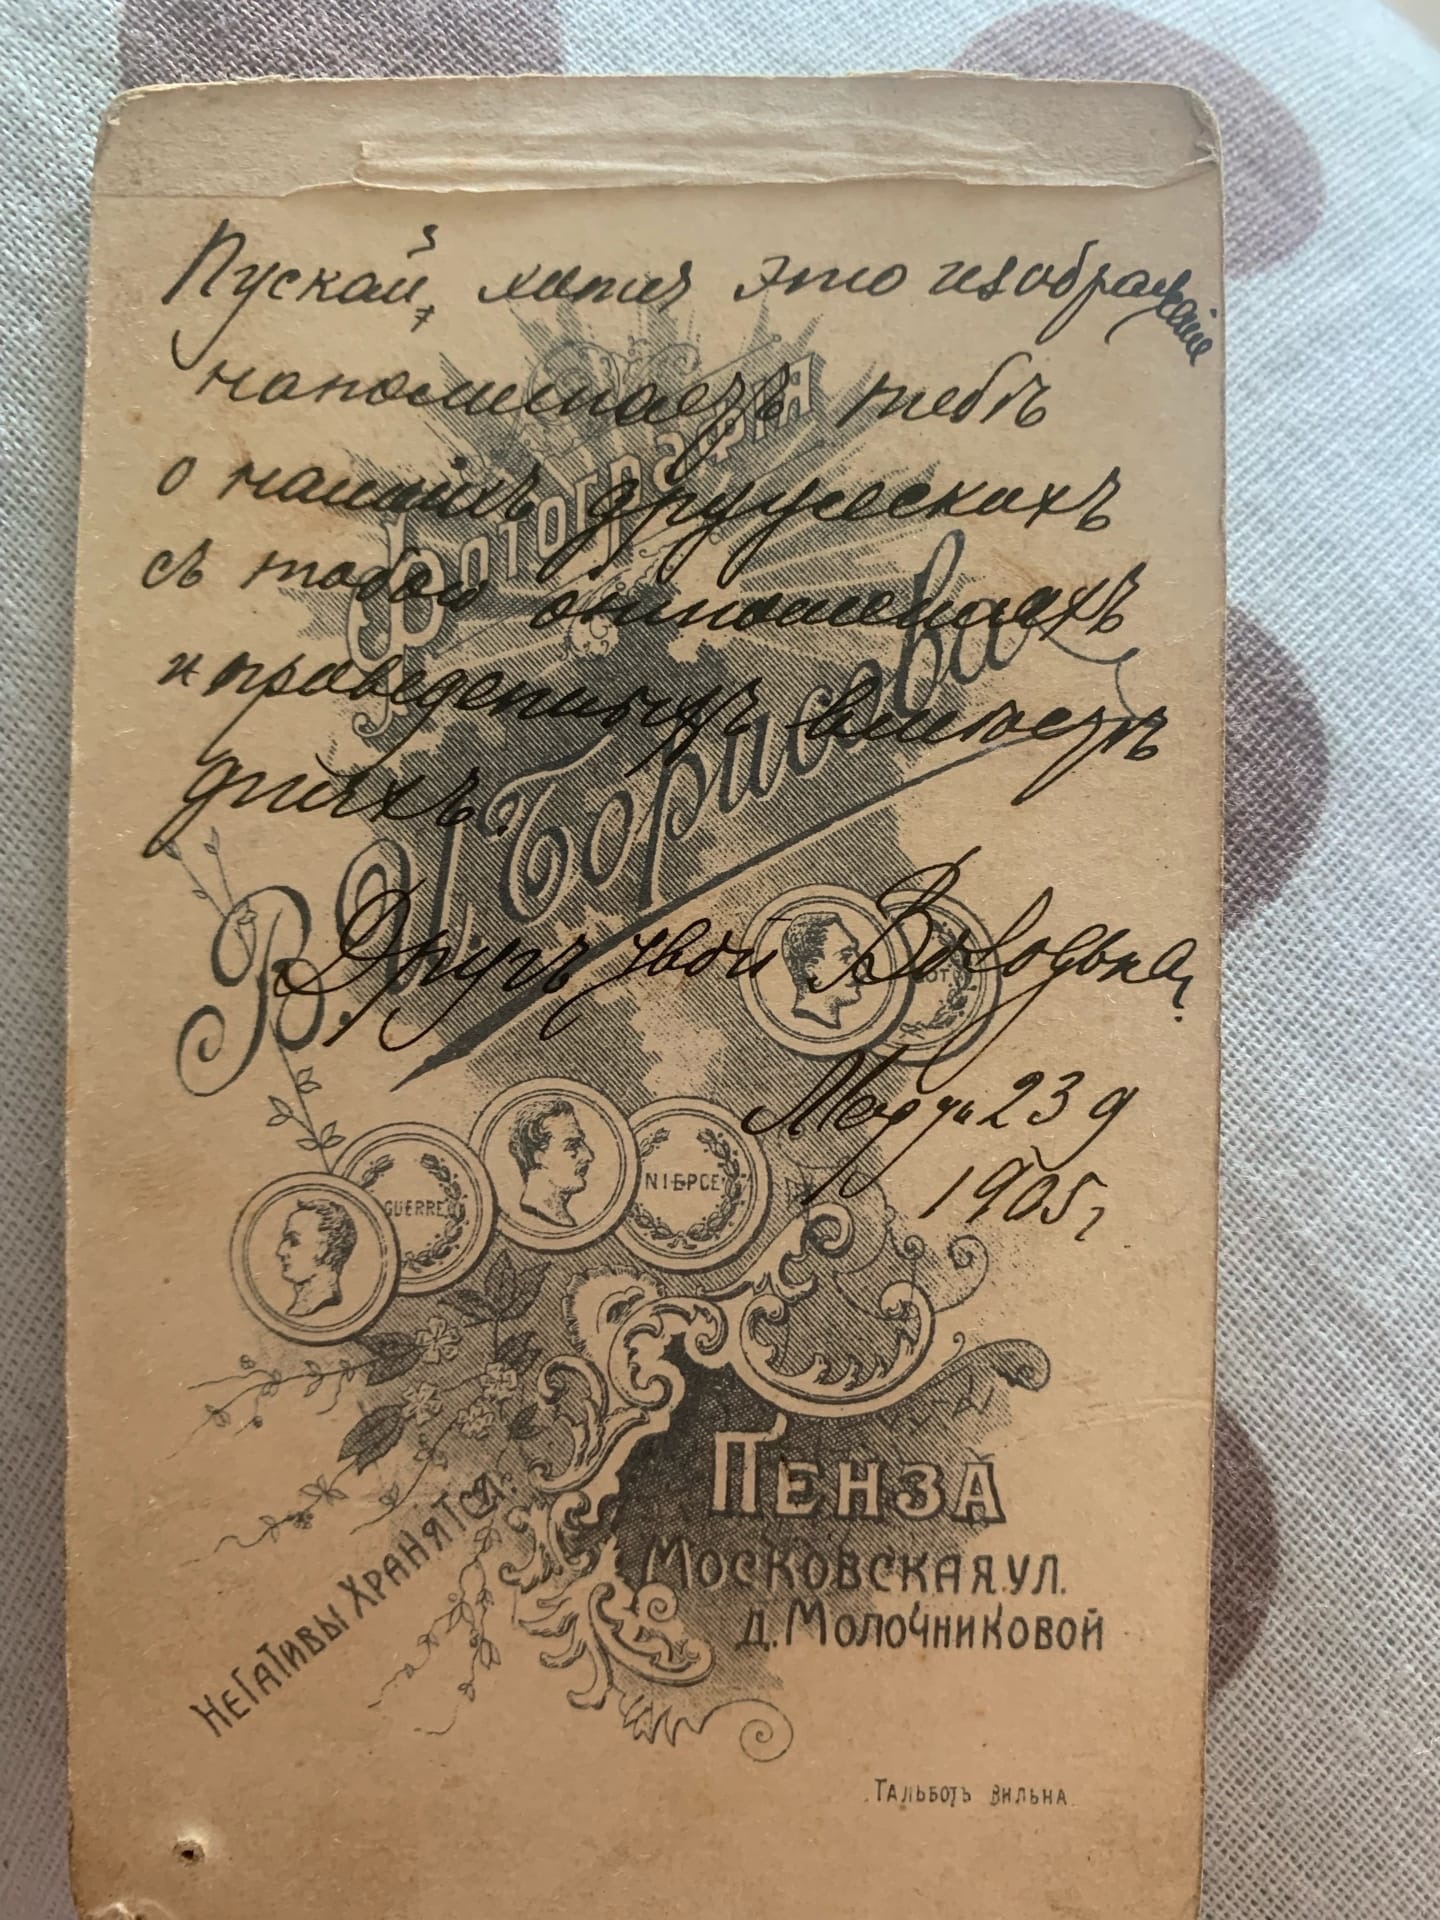 Пускай, хотя это изображаніе
напоминаетъ тебѣ
о нашихъ дружескихъ
съ тобою отношеніяхъ
и проведенныхъ вмѣстѣ
дняхъ.
Другъ твой Володька.
23 д
1905 г
Фотографія
В. И. Борисова
GUERRE
NIEPCE
Пенза
Московская ул.
д. Молочниковой
Негативы хранятся.
Тальботъ Вильна